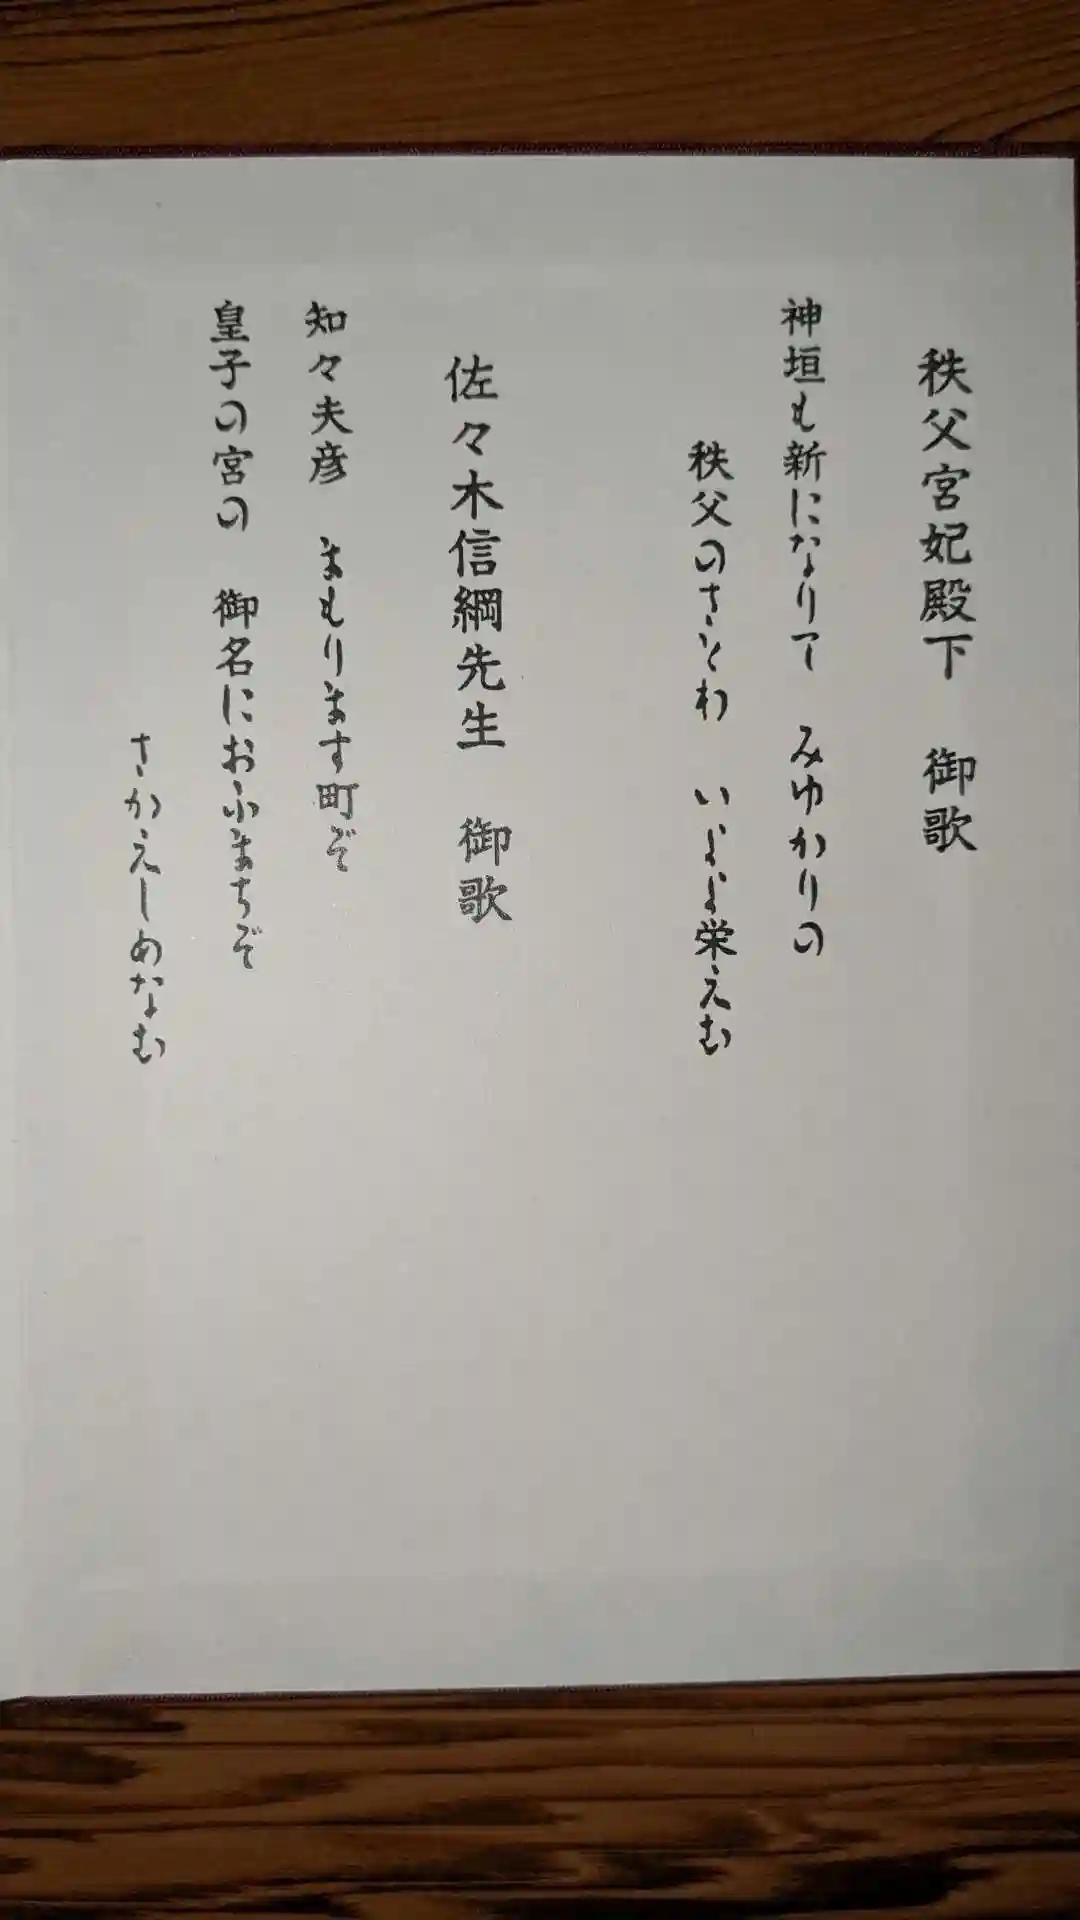 秩父宮妃殿下　御歌
神垣も新になりて　みゆかりの
秩父のさとわ　いよよ栄えむ
佐々木信綱先生　御歌
知々夫彦　まもります町ぞ
皇子の宮の　御名におふまちぞ
さかえしめなむ